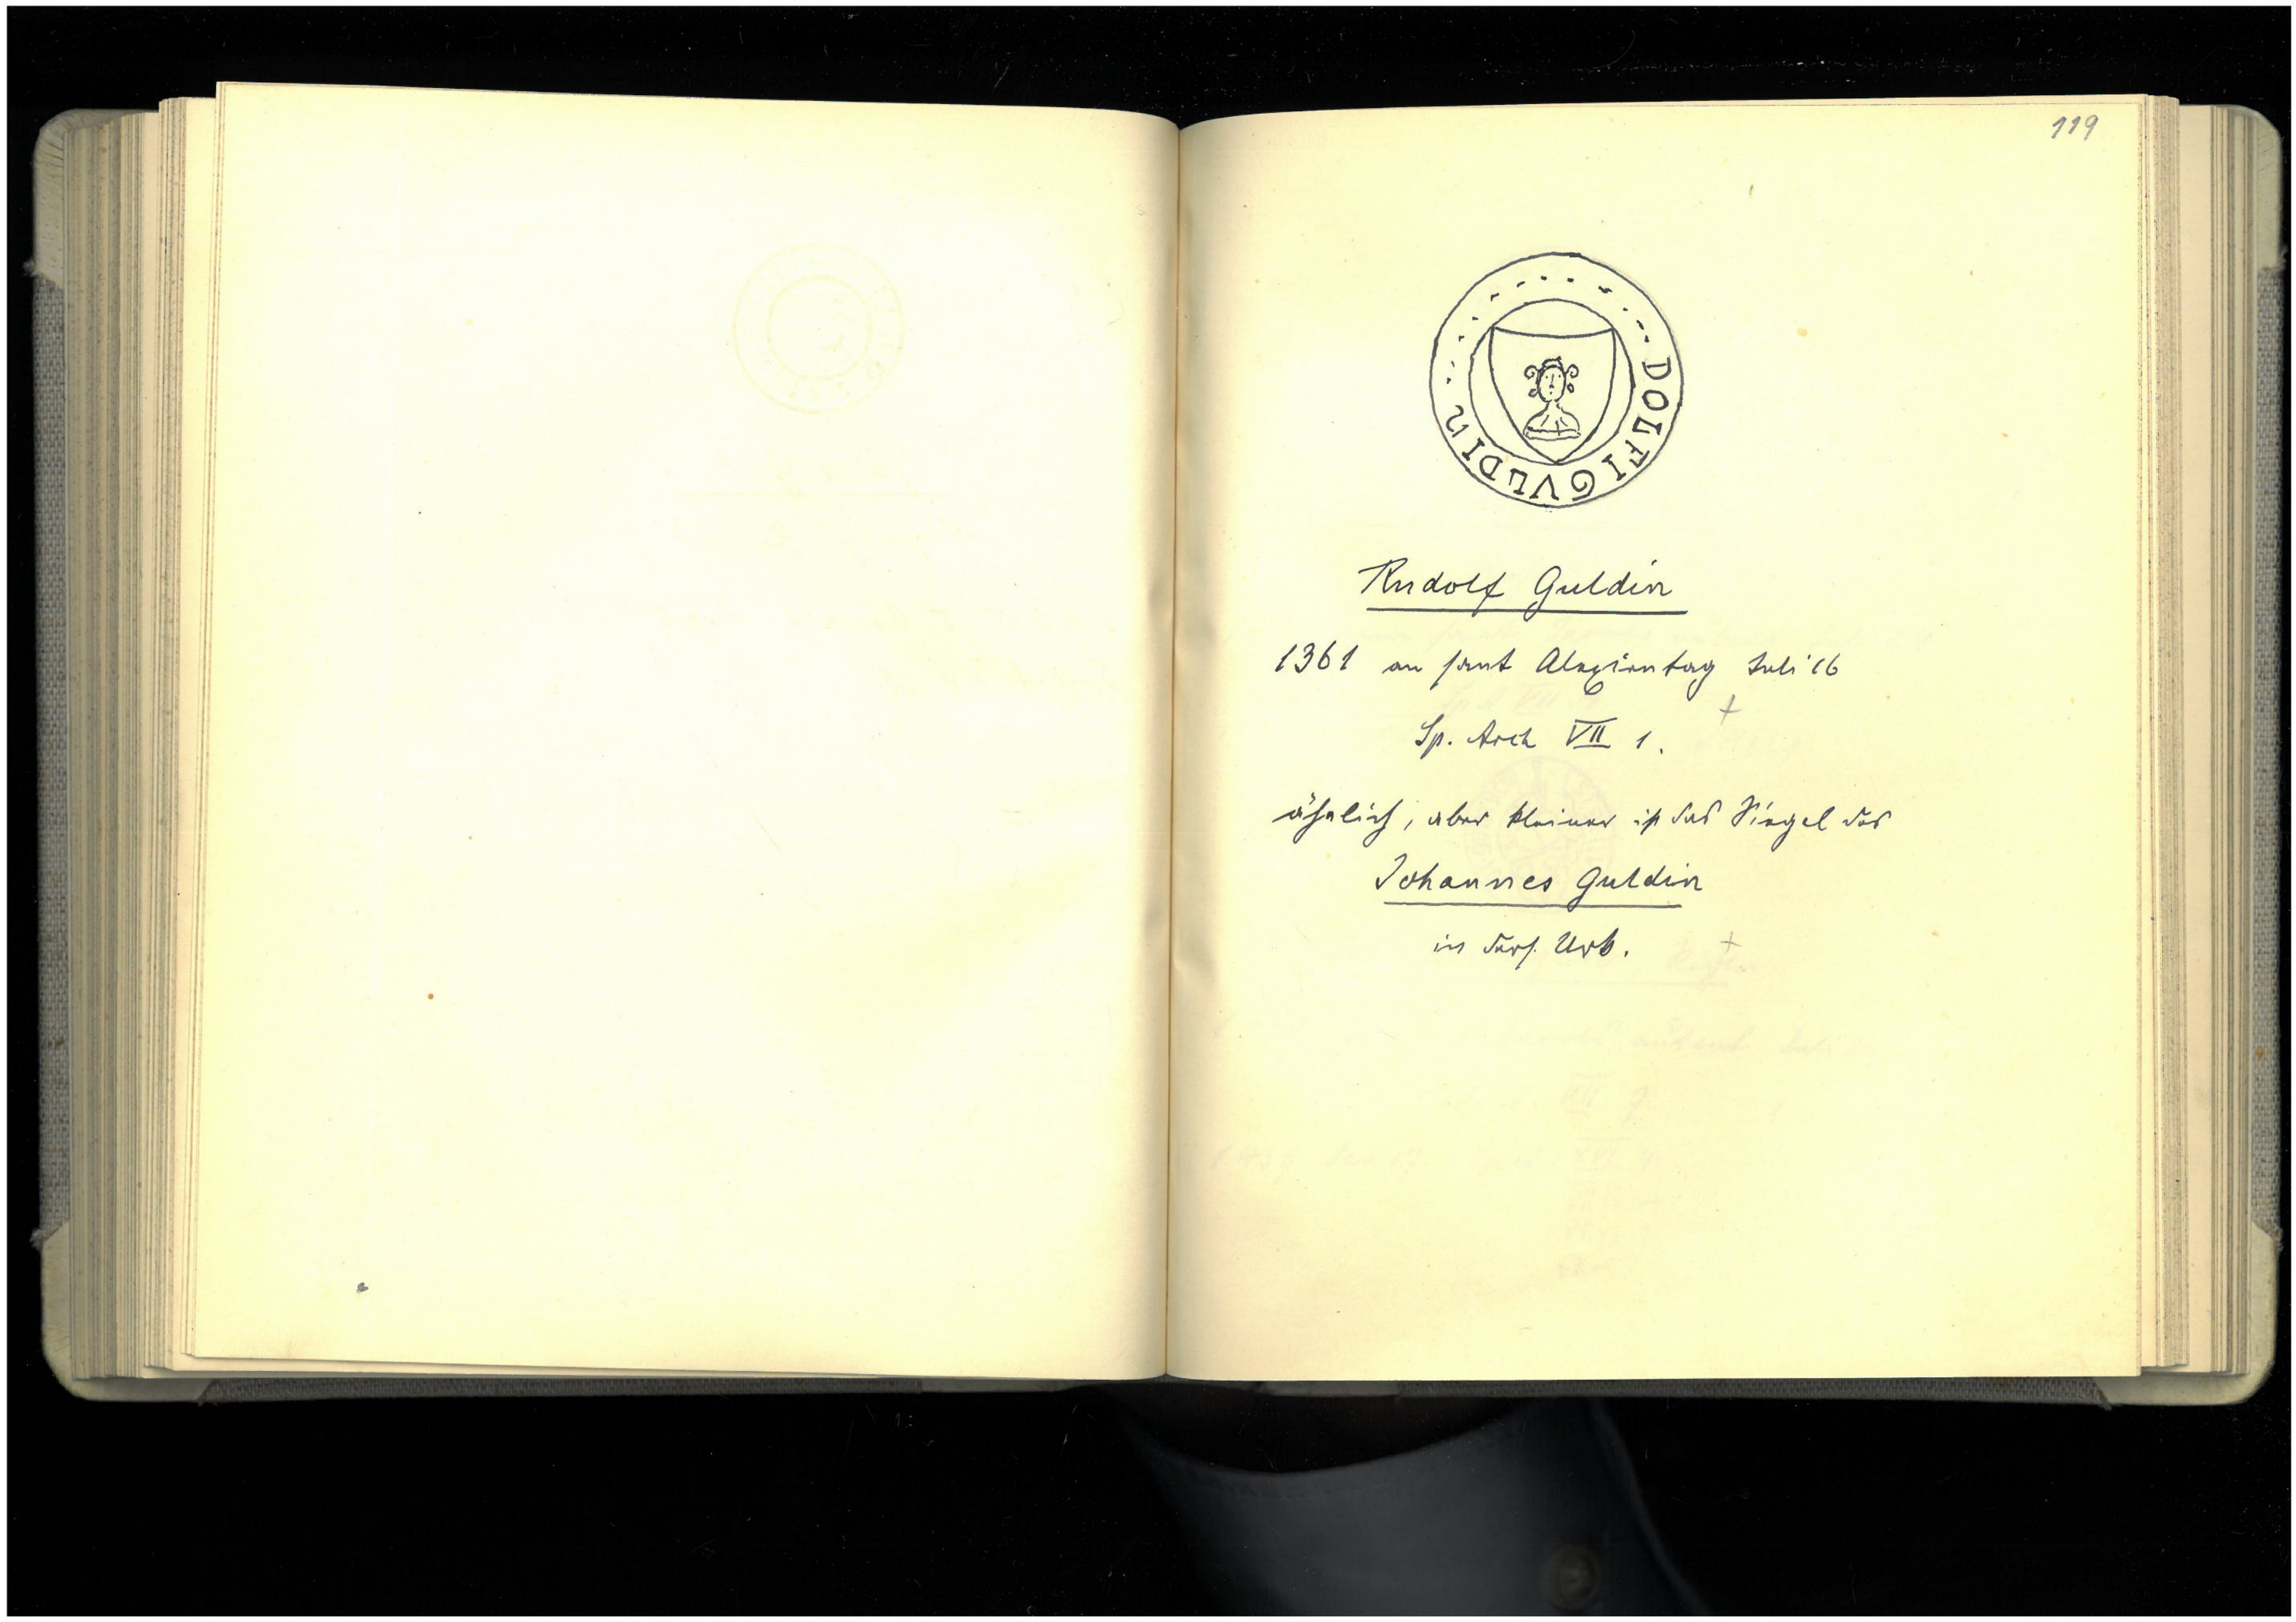 119
DOLFI GVLDIN
Rudolf Guldin
1361 an sant Alexientag Juli 16
Sp. Arch VII 1.
ähnlich, aber kleiner ist das Siegel des
Johannes Guldin
in ders. Urk.